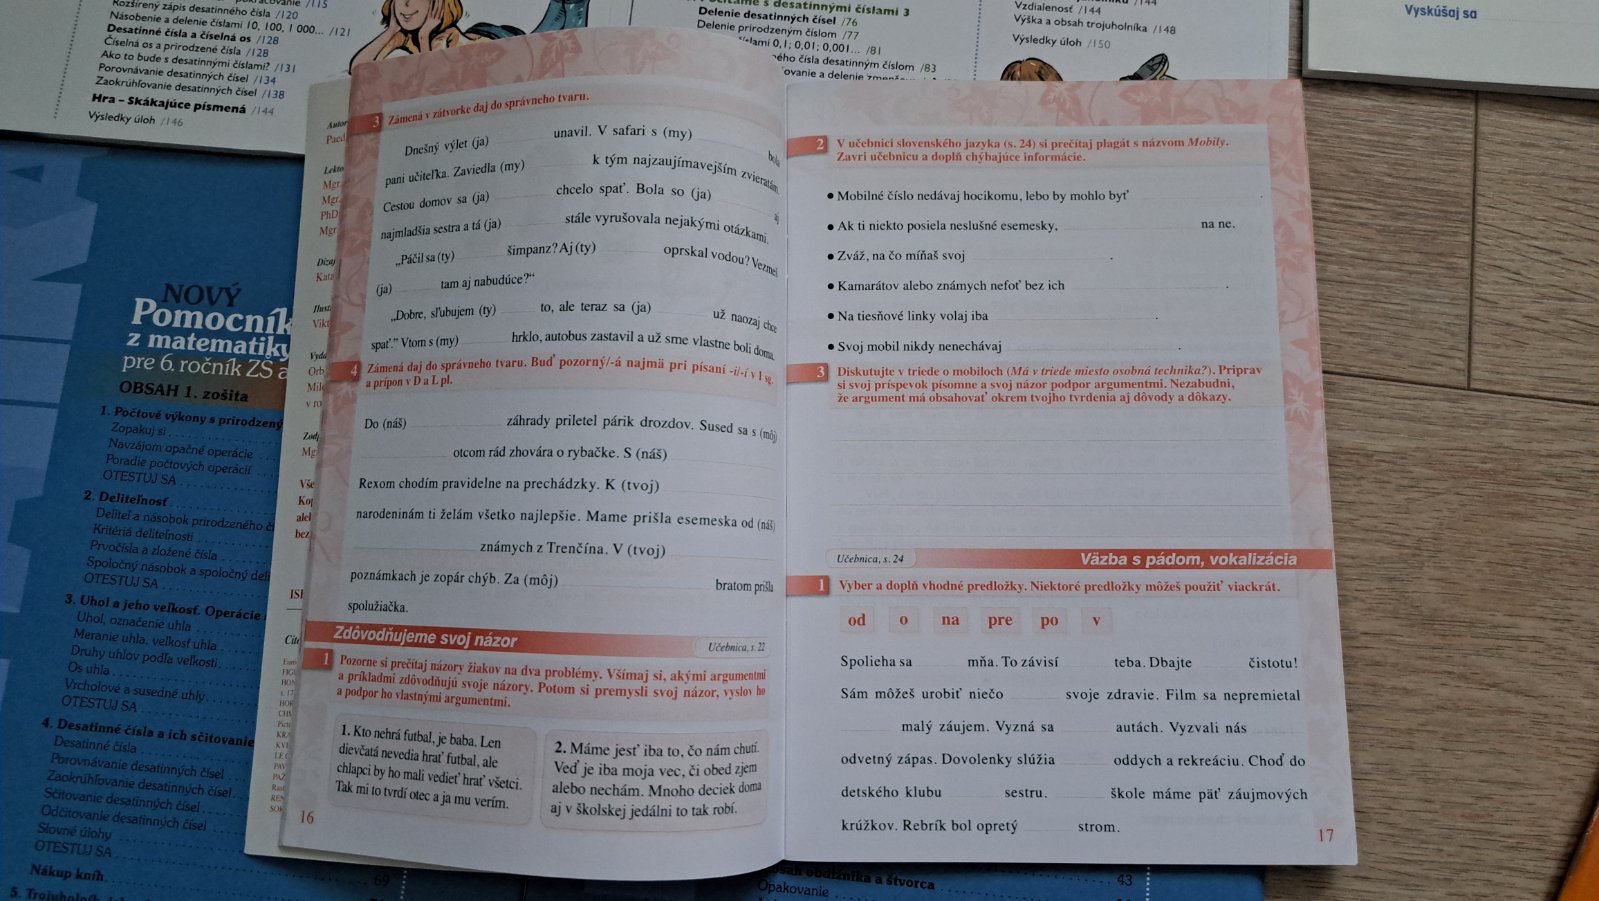 pokračovanie /115
Rozšírený zápis desatinného čísla /120
Násobenie a delenie číslami 10, 100, 1 000... /121
Desatinné čísla a číselná os /128
Číselná os a prirodzené čísla /128
Ako to bude s desatinnými číslami? /131
Porovnávanie desatinných čísel /134
Zaokrúhľovanie desatinných čísel /138
Hra – Skákajúce písmená /144
Výsledky úloh /146
s desatinnými číslami 3
Delenie desatinných čísel /76
Delenie prirodzeným číslom /77
číslami 0,1; 0,01; 0,001... /81
čísla desatinným číslom /83
/144
Vzdialenosť /144
Výška a obsah trojuholníka /148
Výsledky úloh /150
Vyskúšaj sa
NOVÝ
Pomocník
z matematiky
pre 6. ročník ZŠ a
OBSAH 1. zošita
1. Počtové výkony s prirodzený
Zopakuj si
Navzájom opačné operácie
Poradie počtových operácií
OTESTUJ SA
2. Deliteľnosť
Deliteľ a násobok prirodzeného čí
Kritériá deliteľnosti
Prvočísla a zložené čísla
Spoločný násobok a spoločný deli
OTESTUJ SA
3. Uhol a jeho veľkosť. Operácie
Uhol, označenie uhla
Meranie uhla, veľkosť uhla
Druhy uhlov podľa veľkosti
Os uhla
Vrcholové a susedné uhly
OTESTUJ SA
4. Desatinné čísla a ich sčítovanie
Desatinné čísla
Porovnávanie desatinných čísel
Zaokrúhľovanie desatinných čísel
Sčitovanie desatinných čísel
Odčitovanie desatinných čísel
Slovné úlohy
OTESTUJ SA
Nákup kníh 69
Autor
Paed
Lekto
Mgr.
Mgr.
PhD
Mgr.
Dizaj
Kata
Ilust
Vikt
Vyda
Orb
Mile
v ro
Zodp
Mg
Vše
Kop
alel
bez
3 Zámená v zátvorke daj do správneho tvaru.
Dnešný výlet (ja) unavil. V safari s (my) bola
pani učiteľka. Zaviedla (my) k tým najzaujímavejším zvieratám.
Cestou domov sa (ja) chcelo spať. Bola so (ja) aj
najmladšia sestra a tá (ja) stále vyrušovala nejakými otázkami.
„Páčil sa (ty) šimpanz? Aj (ty) oprskal vodou? Vezmeš
(ja) tam aj nabudúce?“
„Dobre, sľubujem (ty) to, ale teraz sa (ja) už naozaj chce
spať.” Vtom s (my) hrklo, autobus zastavil a už sme vlastne boli doma.
4 Zámená daj do správneho tvaru. Buď pozorný/-á najmä pri písaní -i/-í v I sg.
a prípon v D a L pl.
Do (náš) záhrady priletel párik drozdov. Sused sa s (môj)
otcom rád zhovára o rybačke. S (náš)
Rexom chodím pravidelne na prechádzky. K (tvoj)
narodeninám ti želám všetko najlepšie. Mame prišla esemeska od (náš)
známych z Trenčína. V (tvoj)
poznámkach je zopár chýb. Za (môj) bratom prišla
spolužiačka.
Zdôvodňujeme svoj názor
Učebnica, s. 22
1 Pozorne si prečítaj názory žiakov na dva problémy. Všímaj si, akými argumentmi
a príkladmi zdôvodňujú svoje názory. Potom si premysli svoj názor, vyslov ho
a podpor ho vlastnými argumentmi.
1. Kto nehrá futbal, je baba. Len
dievčatá nevedia hrať futbal, ale
chlapci by ho mali vedieť hrať všetci.
Tak mi to tvrdí otec a ja mu verím.
2. Máme jesť iba to, čo nám chutí.
Veď je iba moja vec, či obed zjem
alebo nechám. Mnoho deciek doma
aj v školskej jedálni to tak robí.
16
2 V učebnici slovenského jazyka (s. 24) si prečítaj plagát s názvom Mobily.
Zavri učebnicu a doplň chýbajúce informácie.
● Mobilné číslo nedávaj hocikomu, lebo by mohlo byť .
● Ak ti niekto posiela neslušné esemesky, na ne.
● Zváž, na čo míňaš svoj .
● Kamarátov alebo známych nefoť bez ich .
● Na tiesňové linky volaj iba .
● Svoj mobil nikdy nenechávaj .
3 Diskutujte v triede o mobiloch (Má v triede miesto osobná technika?). Priprav
si svoj príspevok písomne a svoj názor podpor argumentmi. Nezabudni,
že argument má obsahovať okrem tvojho tvrdenia aj dôvody a dôkazy.
Učebnica, s. 24
Väzba s pádom, vokalizácia
1 Vyber a doplň vhodné predložky. Niektoré predložky môžeš použiť viackrát.
od o na pre po v
Spolieha sa mňa. To závisí teba. Dbajte čistotu!
Sám môžeš urobiť niečo svoje zdravie. Film sa nepremietal
malý záujem. Vyzná sa autách. Vyzvali nás
odvetný zápas. Dovolenky slúžia oddych a rekreáciu. Choď do
detského klubu sestru. škole máme päť záujmových
krúžkov. Rebrík bol opretý strom.
17
obdĺžnika a štvorca 43
Opakovanie